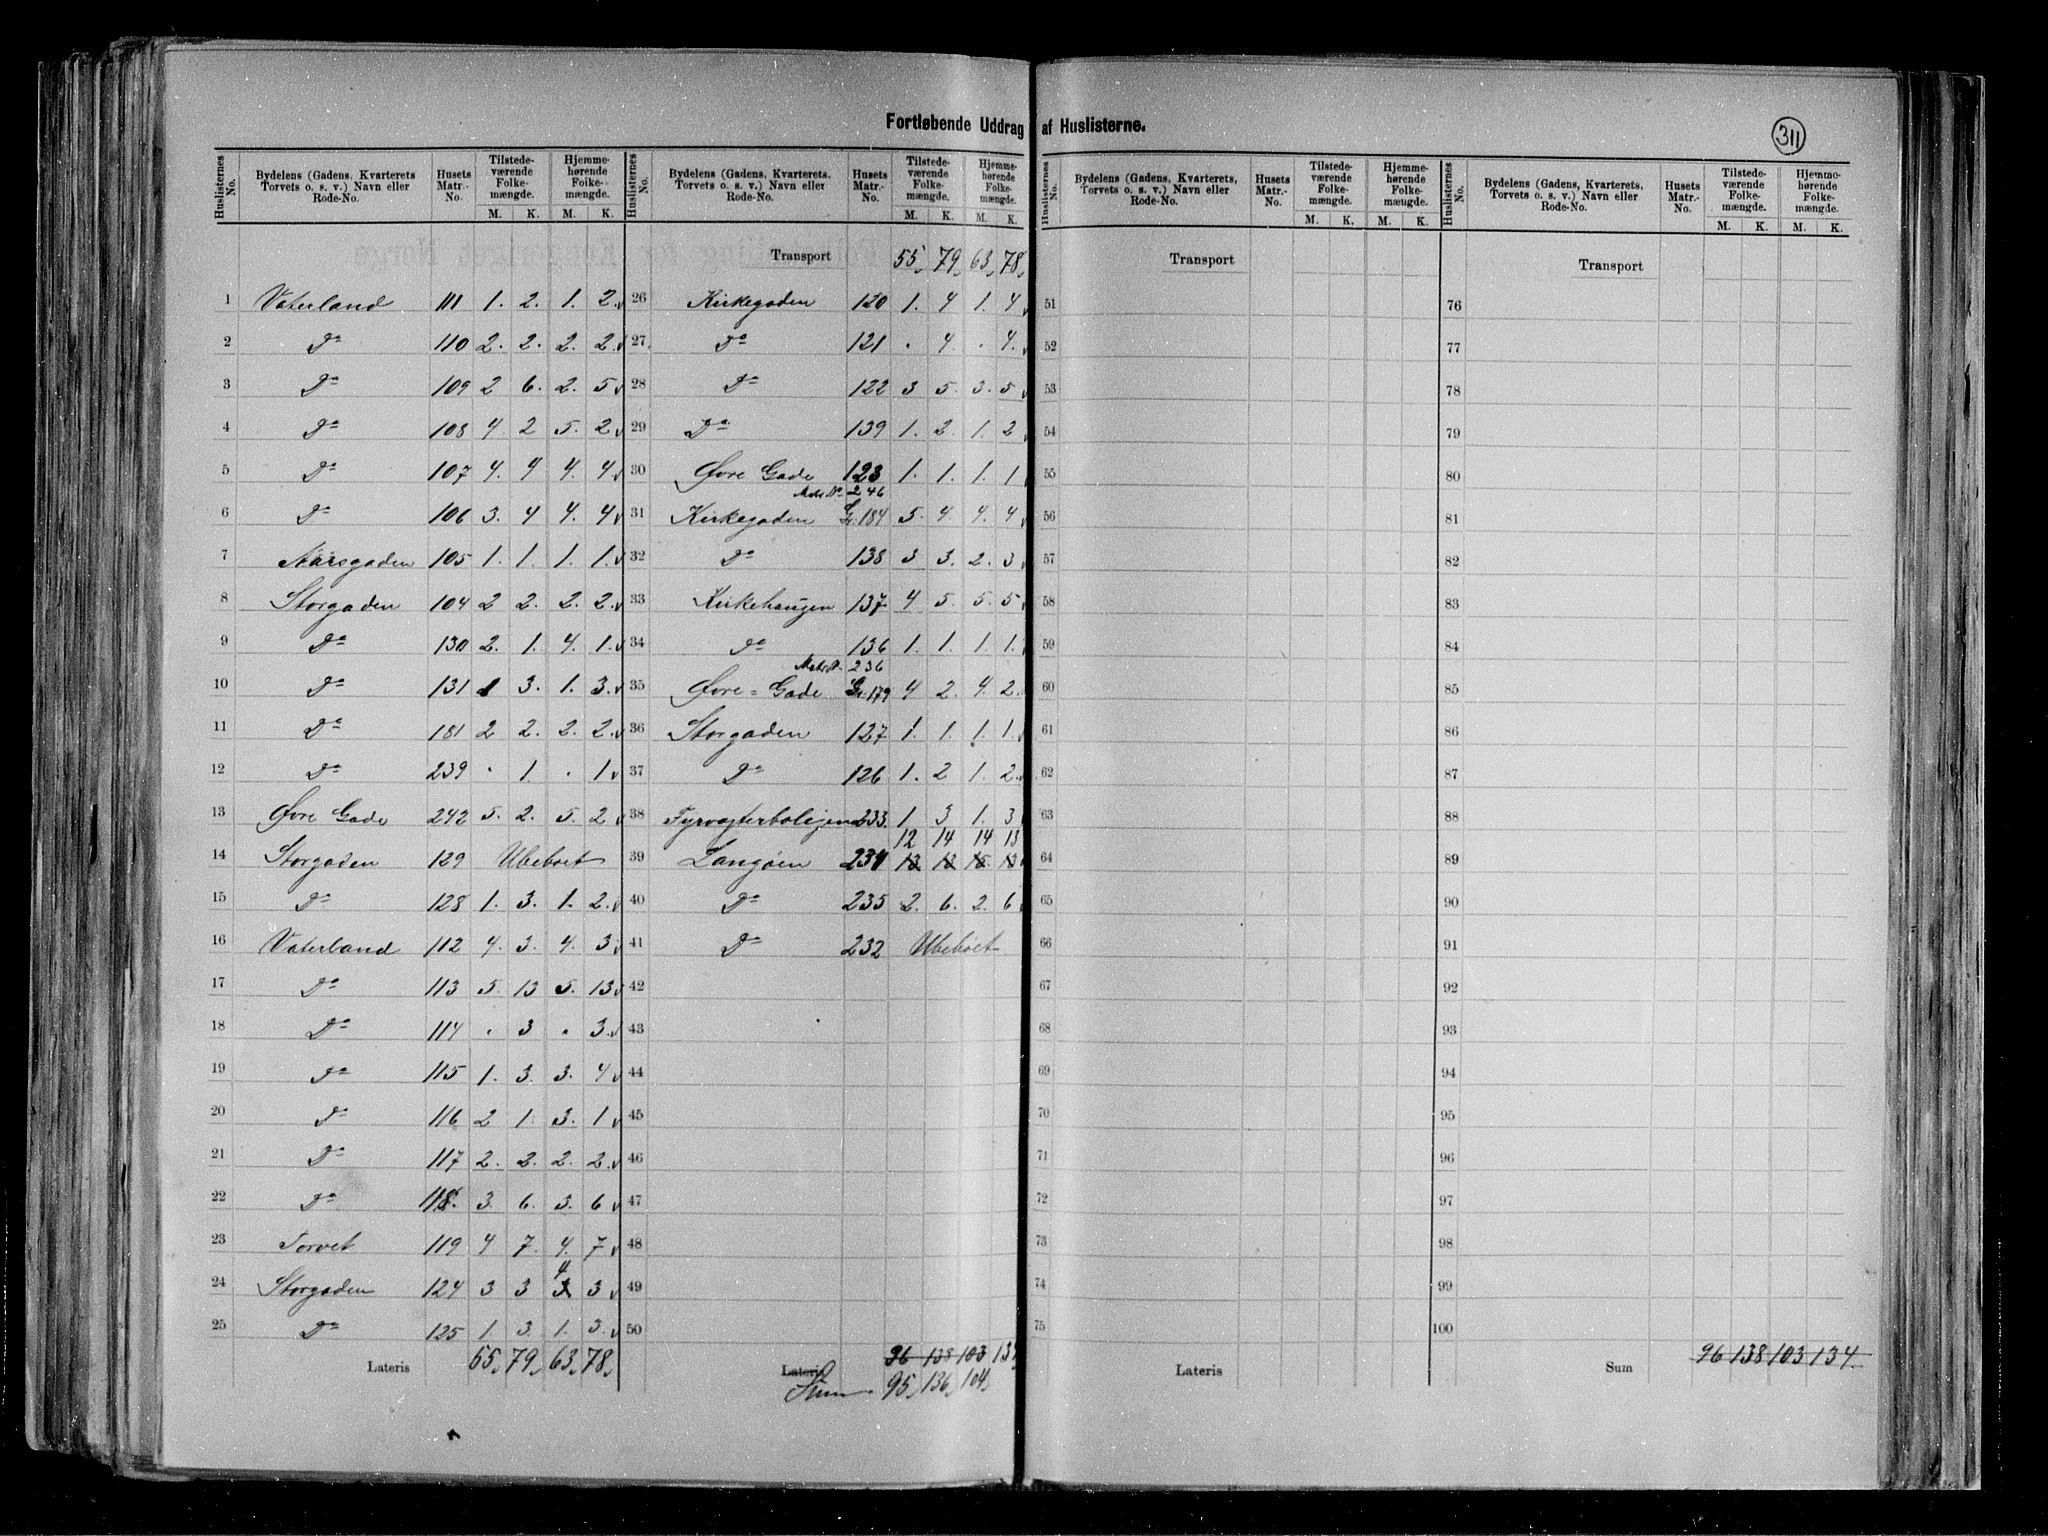 Fortløbende Uddrag af Huslisterne.
311
Huslisternes No. | Bydelens (Gadens, Kvarterets, Torvets o. s. v.) Navn eller Rode-No. | Husets Matr.-No. | Tilstedeværende Folkemængde. M. K. | Hjemmehørende Folkemængde. M. K.
1 Vaterland 111 1. 2. 1. 2.
2 Do 110 2. 2. 2. 2.
3 Do 109 2 6. 2. 5
4 Do 108 4. 2 5. 2
5 Do 107 4. 4 4. 4
6 Do 106 3. 4 4. 4
7 105 1. 1. 1. 1.
8 Storgaden 104 2 2. 2. 2.
9 Do 130 2. 1. 4. 1.
10 Do 131 1 3. 1. 3.
11 Do 181 2 2. 2. 2.
12 Do 239 . 1. . 1
13 Øvre Gade 242 5. 2. 5. 2
14 Storgaden 129 Ubeboet
15 Do 128 1. 3. 1. 2.
16 Vaterland 112 4. 3. 4. 3
17 Do 113 5. 13 5. 13
18 Do 114 . 3 . 3.
19 Do 115 1. 3. 3. 4
20 Do 116 2 1. 3. 1
21 Do 117 2. 2. 2. 2.
22 Do 118. 3. 6. 3. 6
23 Torvet 119 4 7. 4. 7
24 Storgaden 124 3 3 4 3 3
25 Do 125 1. 3. 1. 3.
Lateris 55, 79, 63, 78,
Huslisternes No. | Bydelens (Gadens, Kvarterets, Torvets o. s. v.) Navn eller Rode-No. | Husets Matr.-No. | Tilstedeværende Folkemængde. M. K. | Hjemmehørende Folkemængde. M. K.
Transport 55, 79, 63, 78,
26 Kirkegaden 120 1. 4 1. 4
27. Do 121 . 4. . 4.
28 Do 122 3 5. 3. 5
29 Do 139 1. 2. 1. 2
30 Øvre Gade 123 1. 1. 1. 1
Matr. No 246
31 Kirkegaden Gr. 184 5. 4. 4. 4
32 Do 138 3 3. 2. 3
33 Kirkehaugen 137 4 5. 5. 5
34 Do 136 1. 1. 1. 1.
Matr. N. 236
35 Øvre=Gade Gr. 179 4 2. 4. 2.
36 Storgaden 127 1. 1. 1. 1.
37 Do 126 1. 2 1. 2.
38 Fyrvogterboligen 233. 1. 3 1. 3
12 14 14 13
39 Langøen 234 13 13 15 13
40 Do 235 2. 6. 2. 6
41 Do 232 Ubeboet
42
43
44
45
46
47
48
49
50
Lateris 96 138 103 134
Sum 95, 136, 104,
Huslisternes No. | Bydelens (Gadens, Kvarterets, Torvets o. s. v.) Navn eller Rode-No. | Husets Matr.-No. | Tilstedeværende Folkemængde. M. K. | Hjemmehørende Folkemængde. M. K.
Transport
51
52
53
54
55
56
57
58
59
60
61
62
63
64
65
66
67
68
69
70
71
72
73
74
75
Lateris
Huslisternes No. | Bydelens (Gadens, Kvarterets, Torvets o. s. v.) Navn eller Rode-No. | Husets Matr.-No. | Tilstedeværende Folkemængde. M. K. | Hjemmehørende Folkemængde. M. K.
Transport
76
77
78
79
80
81
82
83
84
85
86
87
88
89
90
91
92
93
94
95
96
97
98
99
100
Sum 96 138 103 134